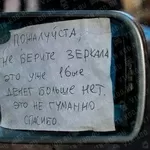 ПОЖАЛУЙСТА,
НЕ БЕРИТЕ ЗЕРКАЛА
ЭТО УЖЕ 16ЫЕ
ДЕНЕГ БОЛЬШЕ НЕТ.
ЭТО НЕ ГУМАННО
СПАСИБО.